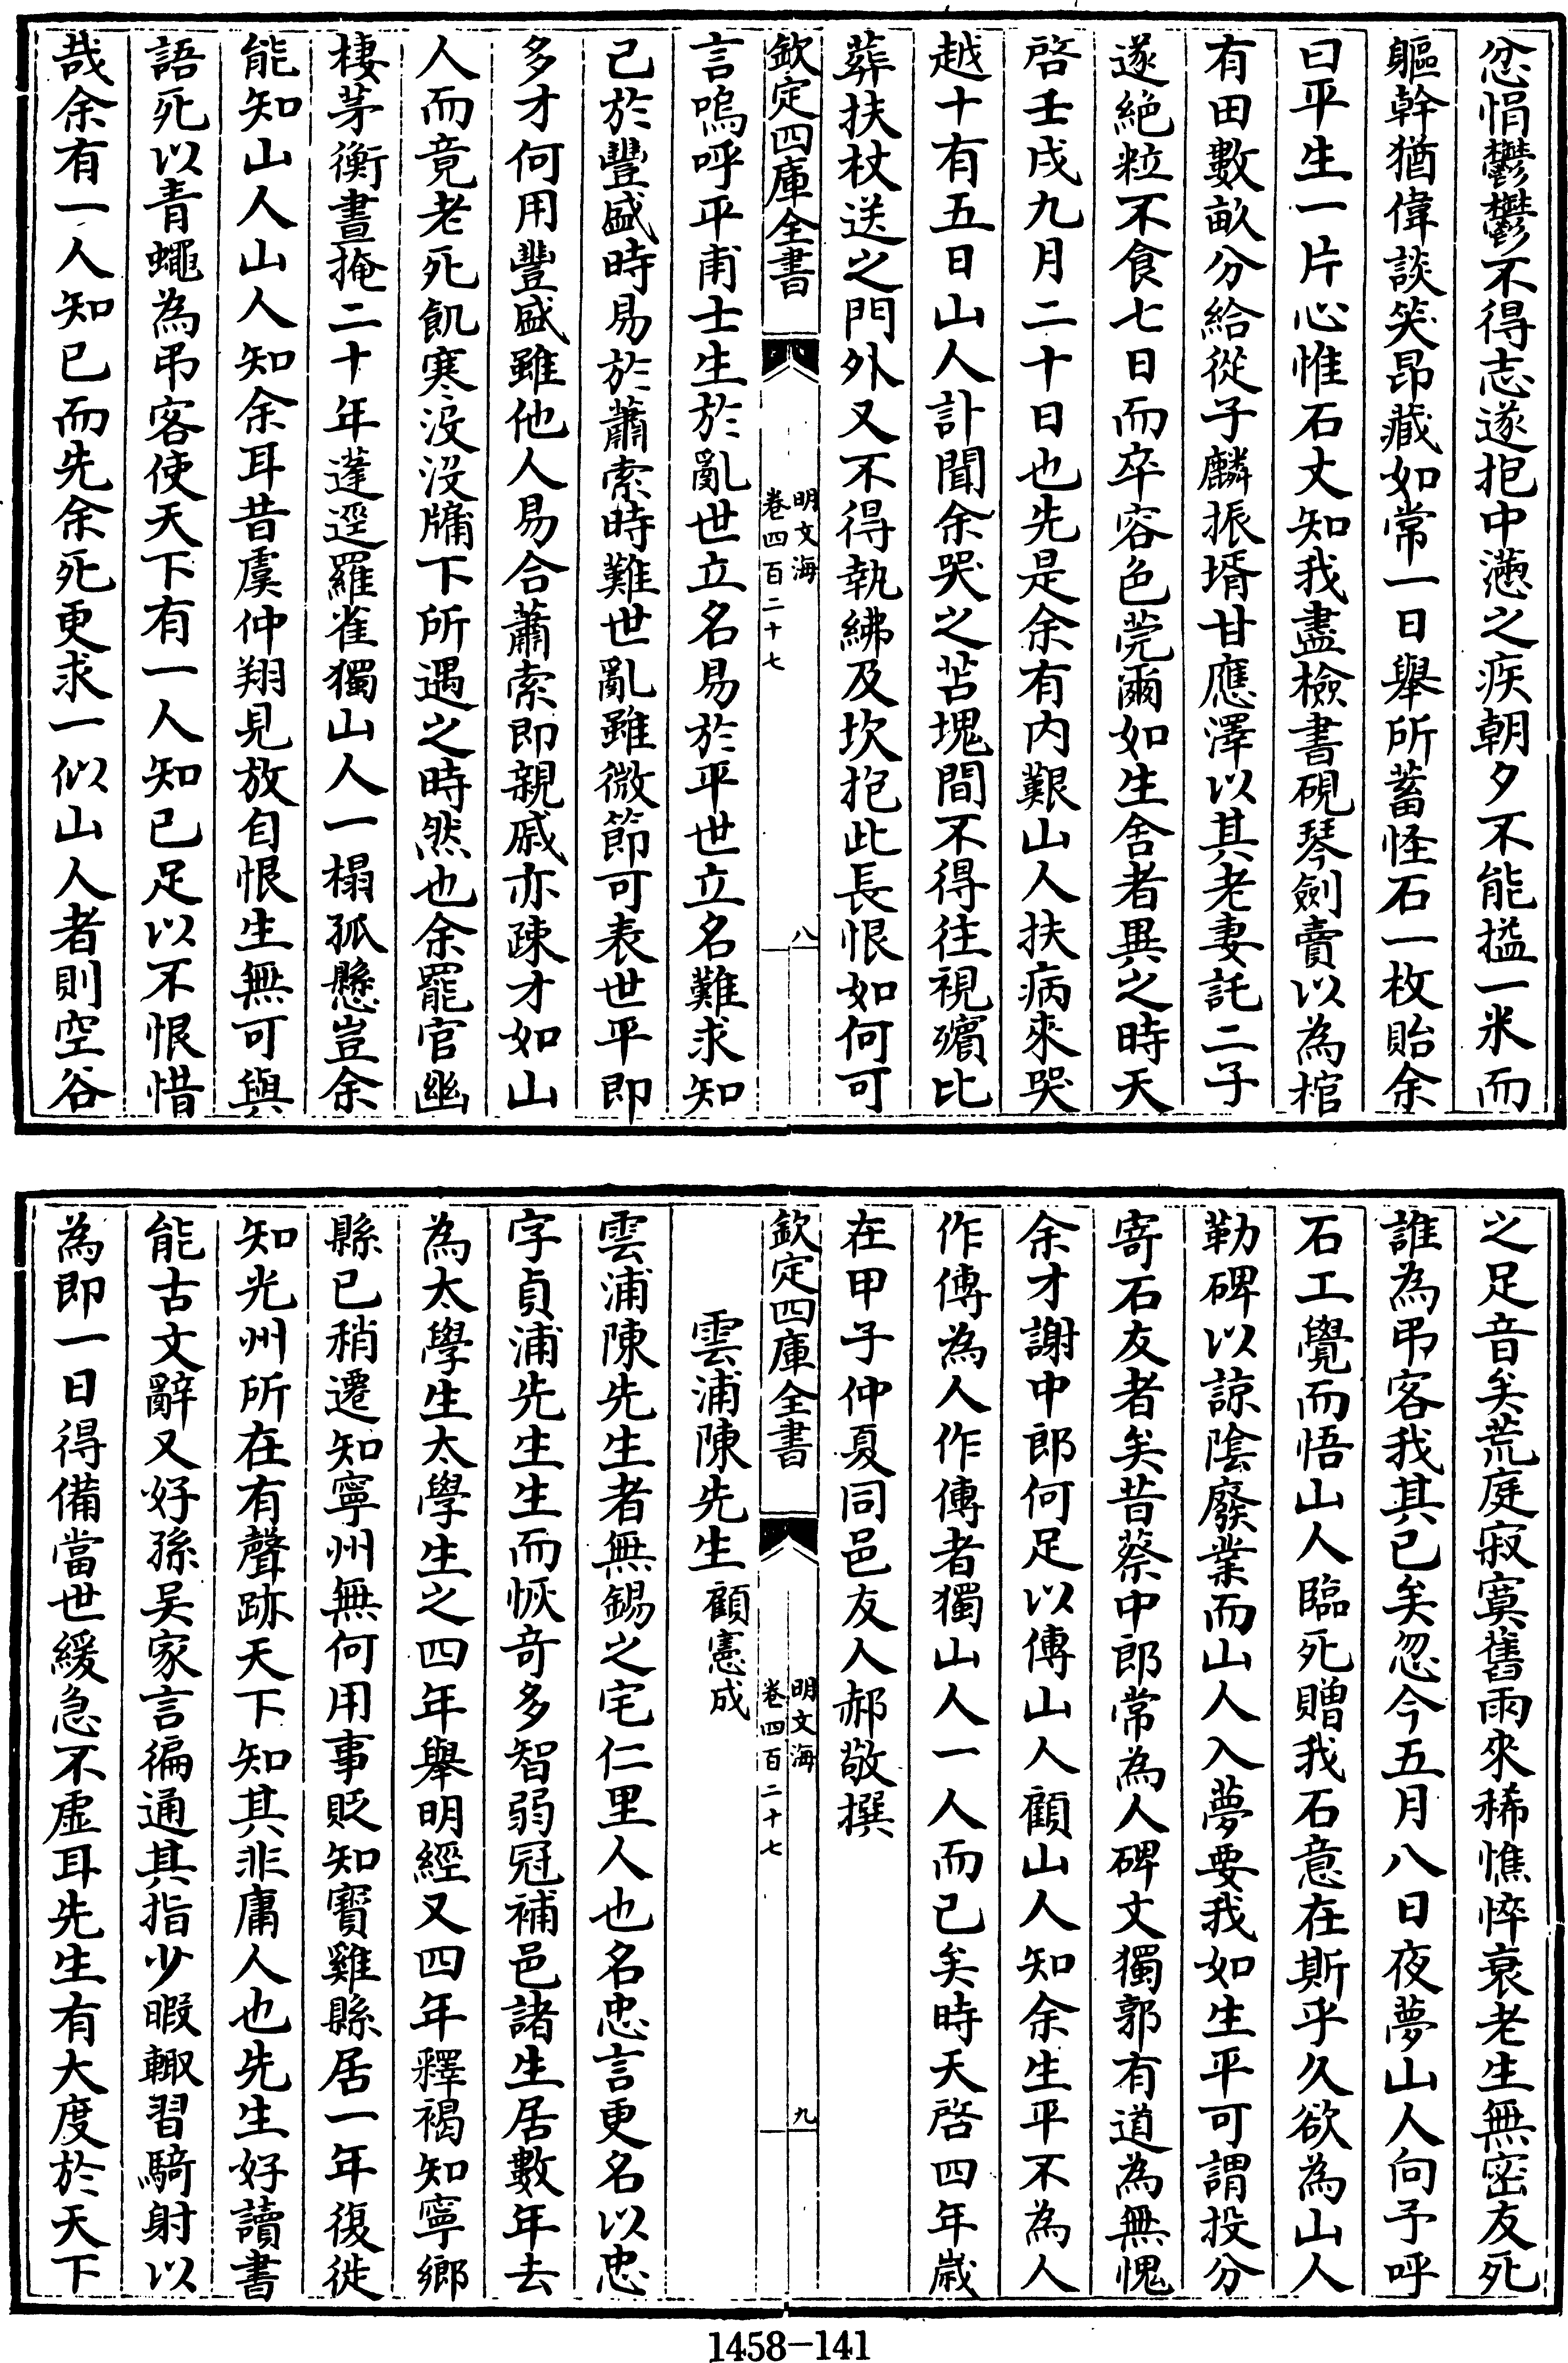 忿悁鬱鬱不得志遂抱中懣之疾朝夕不能搤一米而
軀幹猶偉談笑昂藏如常一日舉所蓄怪石一枚貽余
曰平生一片心惟石丈知我盡檢書硯琴劍賣以為棺
有田數畝分給從子麟振壻甘應澤以其老妻託二子
遂絕粒不食七日而卒容色莞爾如生舍者異之時天
啓壬戌九月二十日也先是余有内艱山人扶病來哭
越十有五日山人訃聞余哭之苫塊間不得往視殯比
葬扶杖送之門外又不得執紼及坎抱此長恨如何可
欽定四庫全書
明文海
卷四百二十七
八
言嗚呼平甫士生於亂世立名易於平世立名難求知
己於豐盛時易於蕭索時難世亂雖微節可表世平即
多才何用豐盛雖他人易合蕭索即親戚亦疎才如山
人而竟老死飢寒没没牖下所遇之時然也余罷官幽
棲茅衡晝掩二十年蓬逕羅雀獨山人一榻孤懸豈余
能知山人山人知余耳昔虞仲翔見放自恨生無可與
語死以青蠅為弔客使天下有一人知已足以不恨惜
哉余有一人知已而先余死更求一似山人者則空谷
之足音矣荒庭寂寞舊雨來稀憔悴衰老生無密友死
誰為弔客我其已矣忽今五月八日夜夢山人向予呼
石工覺而悟山人臨死贈我石意在斯乎久欲為山人
勒碑以諒陰廢業而山人入夢要我如生平可謂投分
寄石友者矣昔蔡中郎常為人碑文獨郭有道為無愧
余才謝中郎何足以傳山人顧山人知余生平不為人
作傳為人作傳者獨山人一人而已矣時天啓四年歲
在甲子仲夏同邑友人郝敬撰
欽定四庫全書
明文海
卷四百二十七
九
雲浦陳先生 顧憲成
雲浦陳先生者無錫之宅仁里人也名忠言更名以忠
字貞浦先生生而恢奇多智弱冠補邑諸生居數年去
為太學生太學生之四年舉明經又四年釋褐知寧鄉
縣已稍遷知寧州無何用事貶知寳雞縣居一年復徙
知光州所在有聲跡天下知其非庸人也先生好讀書
能古文辭又好孫吴家言徧通其指少暇輙習騎射以
為即一日得備當世緩急不虚耳先生有大度於天下
1458-141